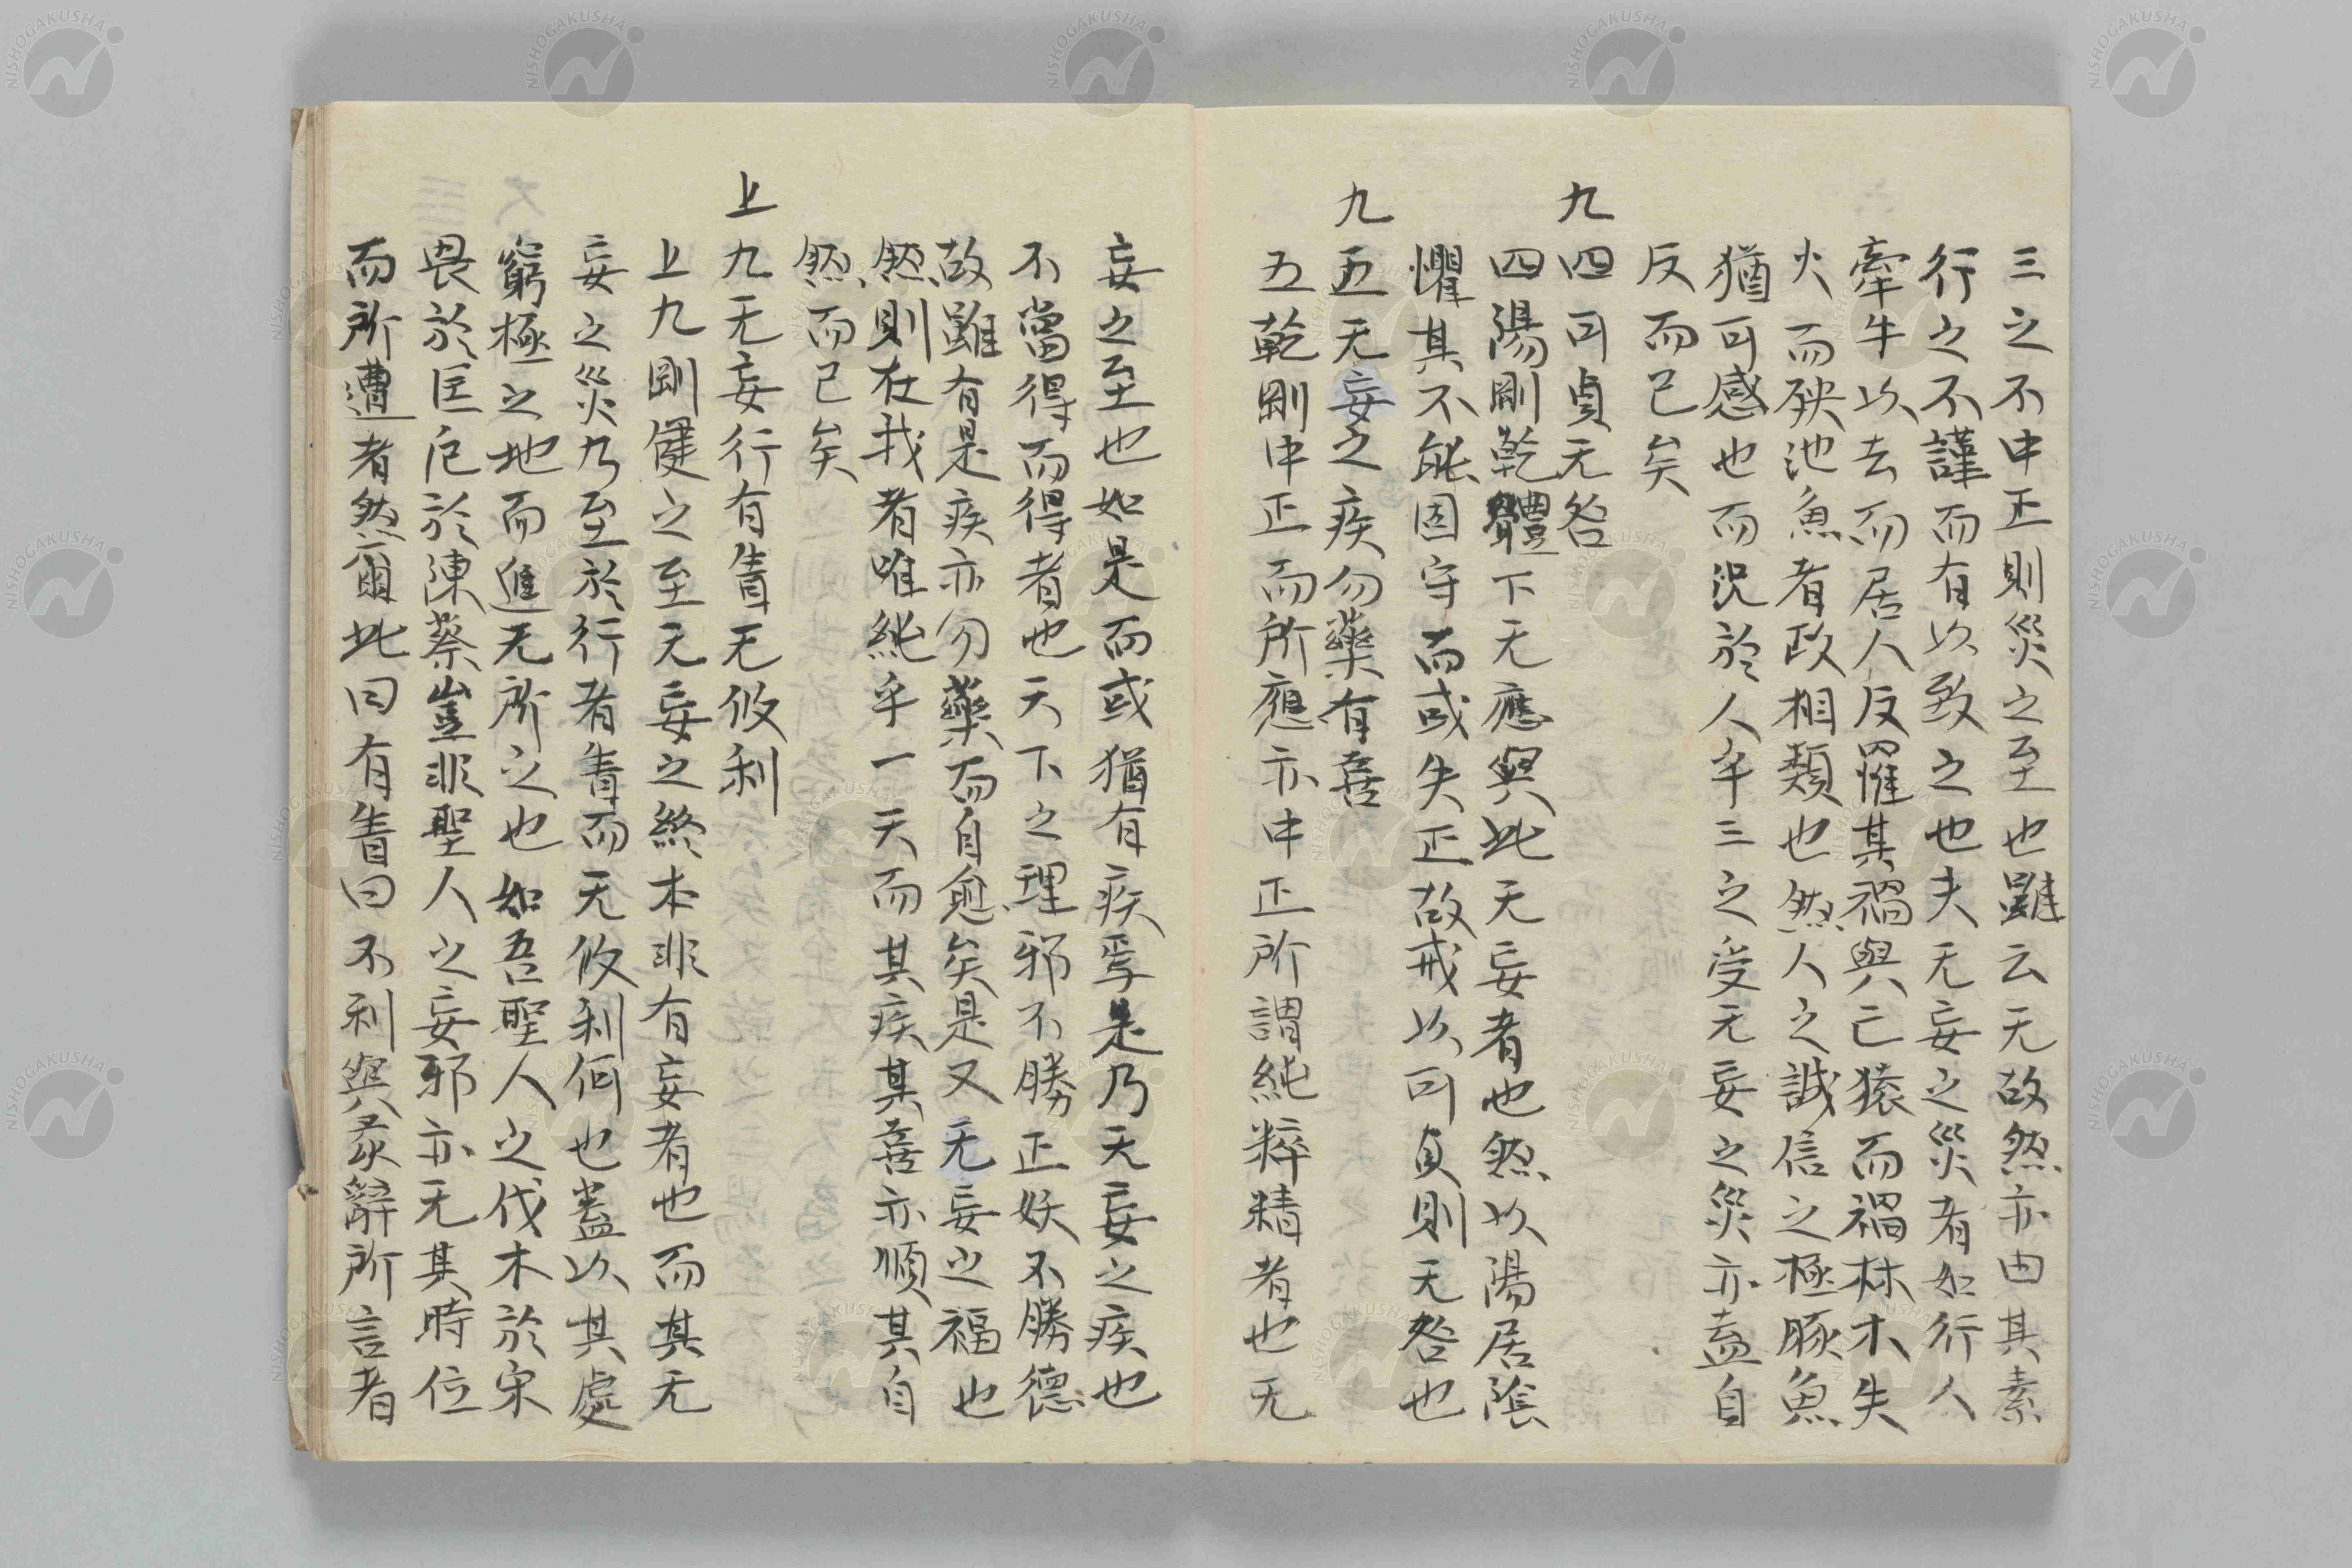 三之不中正則災之至也雖云无故然亦由其素
行之不謹而有以致之也夫无妄之災者如行人
牽牛以去而居人反罹其禍與亡猿而禍林木失
火而殃池魚者政相類也然人之誠信之極豚魚
猶可感也而況於人乎三之受无妄之災亦盍自
反而已矣
九四可貞无咎
四陽剛乾體下无應與此无妄者也然以陽居陰
懼其不能固守而或失正故戒以可貞則无咎也
九五无妄之疾勿藥有喜
五乾剛中正而所應亦中正所謂純粹精者也无
妄之至也如是而或猶有疾焉是乃无妄之疾也
不當得而得者也天下之理邪不勝正妖不勝德
故雖有是疾亦勿藥而自愈矣是又无妄之福也
然則在我者唯純乎一天而其疾其喜亦順其自
然而已矣
上九无妄行有眚无攸利
上九剛健之至无妄之終本非有妄者也而其无
妄之災乃至於行者眚而无攸利何也蓋以其處
窮極之地而進无所之也如吾聖人之伐木於宋
畏於匡戹於陳蔡豈非聖人之妄邪亦无其時位
而所遭者然爾此曰有眚曰不利與彖辭所言者
NISHOGAKUSHA